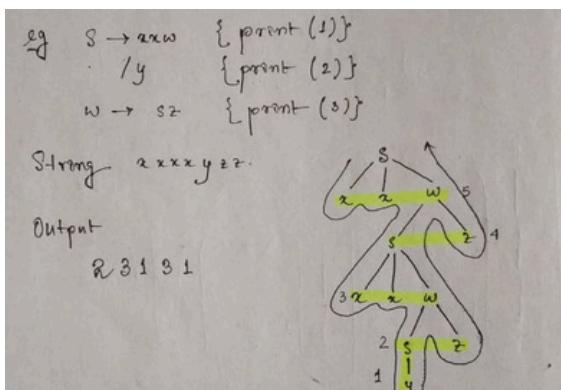 eg S → xxw { print (1)}
/y { print (2)}
w → sz { print (3)}
String xxxxyzz.
Output
2 3 1 3 1
S
x x w 5
s z 4
3 x x w
2 s z
1 y